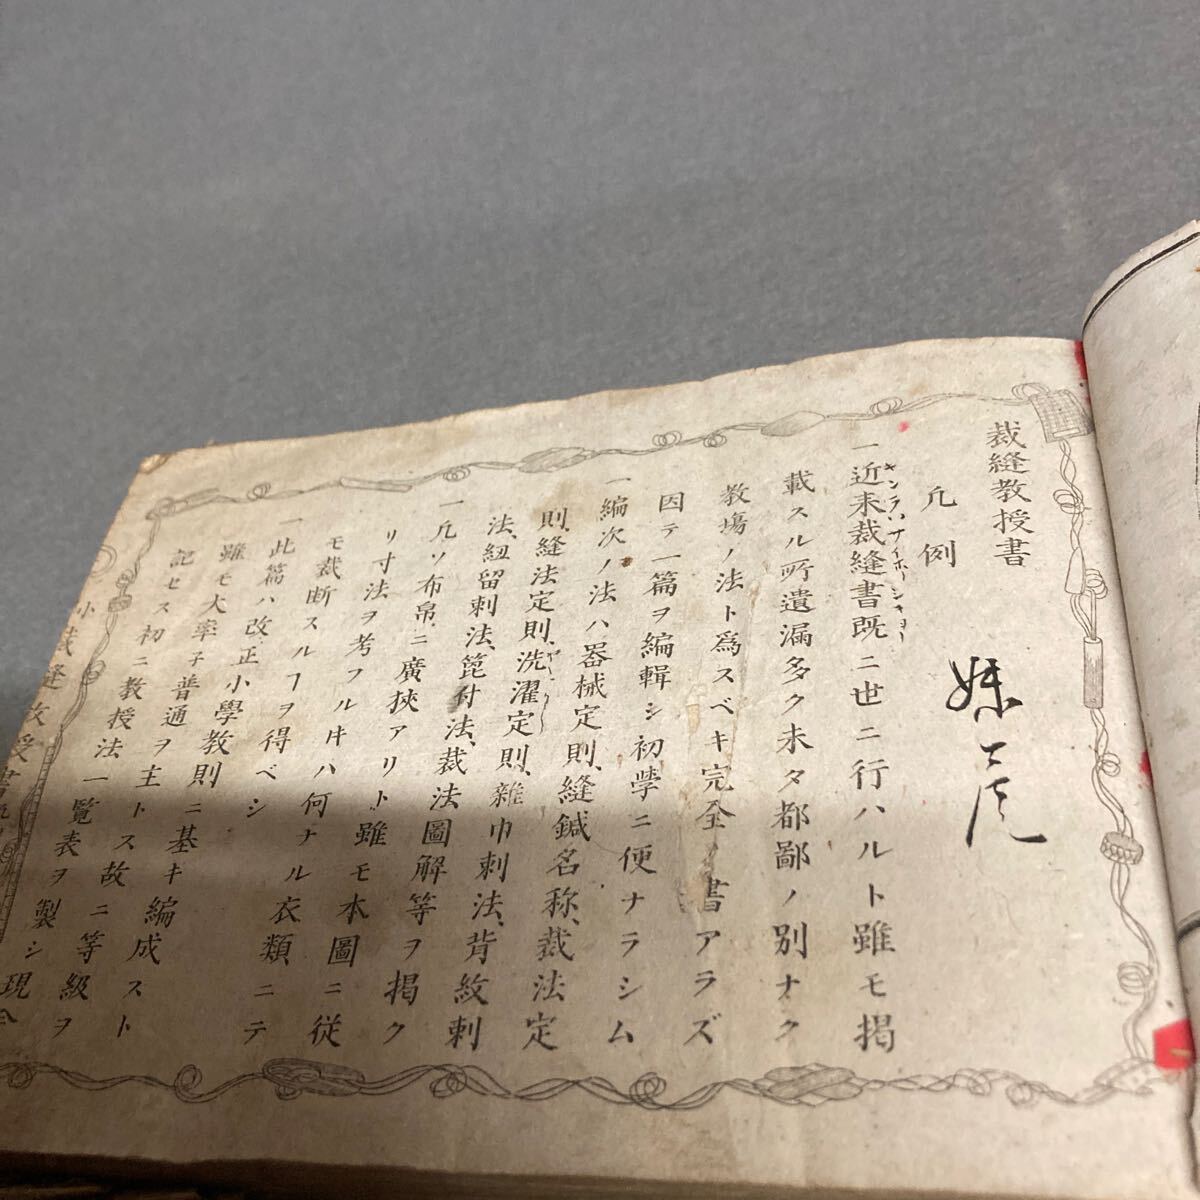 裁縫教授書
凡例
一近来裁縫書既ニ世ニ行ハルト雖モ掲
載スル所遺漏多ク未タ都鄙ノ別ナク
教場ノ法ト為スベキ完全ノ書アラズ
因テ一篇ヲ編輯シ初學ニ便ナラシム
一編次ノ法ハ器械定則、縫鍼名称、裁法定
則、縫法定則、洗濯定則、雑巾刺法、背紋刺
法、紐留刺法、箆付法、裁法圖解等ヲ掲ク
一凡ソ布帛ニ廣狹アリト雖モ本圖ニ従
リ寸法ヲ考フルヰハ何ナル衣類ニテ
モ裁断スルヿヲ得ベシ
一此篇ハ改正小學教則ニ基キ編成スト
雖モ大率子普通ヲ主トス故ニ等級ヲ
記セス初ニ教授法一覧表ヲ製シ現